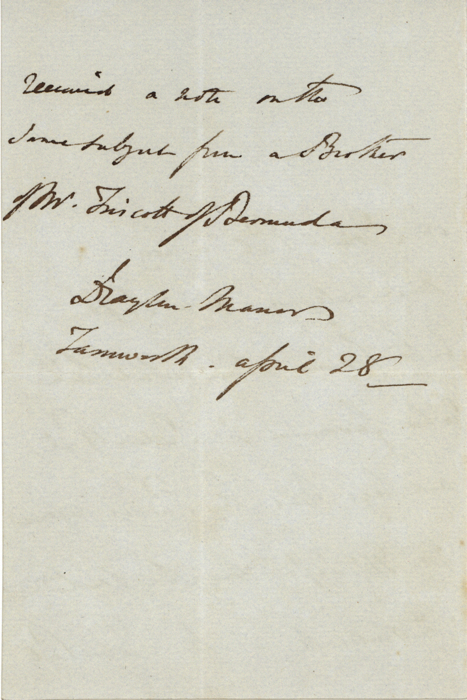 received a note on the
same subject from a Brother
of Mr. Triscott of Bermuda
Drayton Manor
Tamworth. April 28